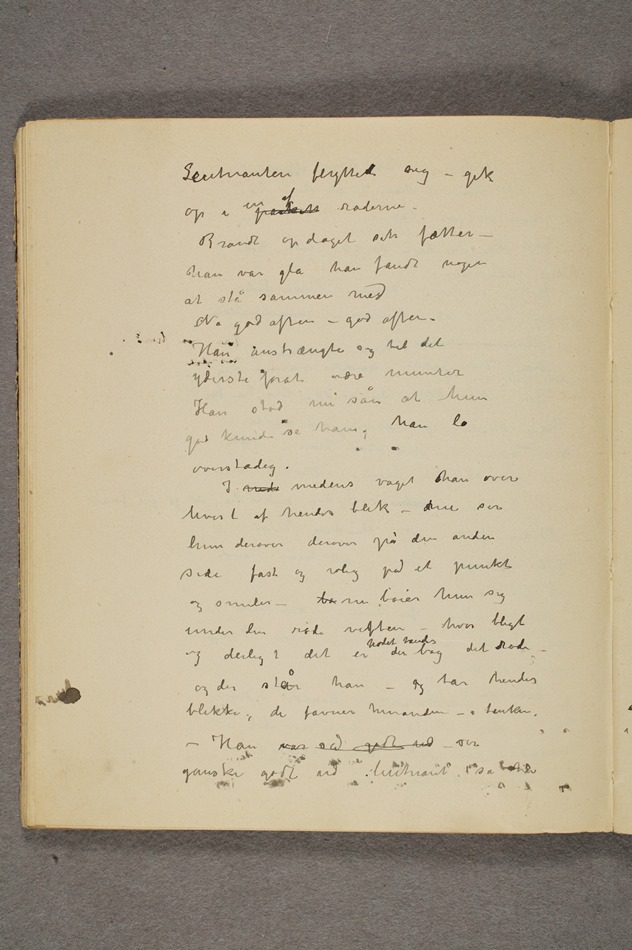 Leutnanten flytted sig – gik
op i en af raderne –
Brandt opdaget sin fætter –
han var gla han fandt nogen
at stå sammen med
Na god aften – god aften –
Han anstrængte sig til det
yderste forat være munter
Han stod nu sån at hun
god kunde se ham, han lo
overstadig.
I medens vaget han over
hvert af hendes blik – nu ser
hun derover derover på den anden
side fast og rolig på et punkt
og smiler – nu bøier hun sig
under den røde viften – hvor bligt
og deiligt det er hodet hendes der bag det røde –
og der står han – og tar hendes
blikke, de favner hinanden –
– Han var så godt ud – ser
ganske godt ud leutnant sa